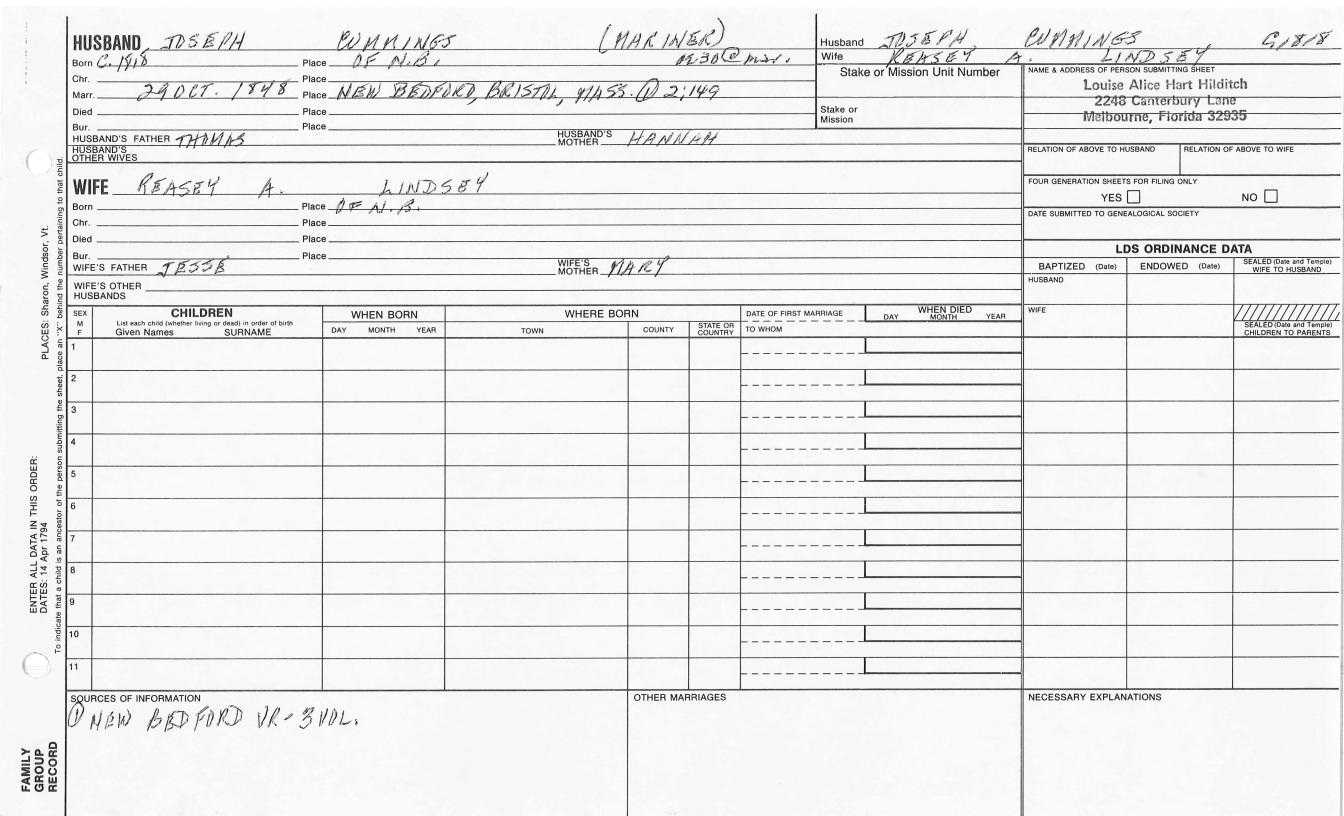 HUSBAND JOSEPH CUMMINGS (MARINER)
Born C. 1818 Place OF N.B.
Chr. Place
Marr. 29 OCT. 1848 Place NEW BEDFORD, BRISTOL, MASS. ① 2:149
Died Place
Bur. Place
HUSBAND'S FATHER THOMAS HUSBAND'S MOTHER HANNAH
HUSBAND'S OTHER WIVES
Husband JOSEPH CUMMINGS C1818
Wife REASEY A. LINDSEY
Stake or Mission Unit Number
Stake or
Mission
NAME & ADDRESS OF PERSON SUBMITTING SHEET
Louise Alice Hart Hilditch
2248 Canterbury Lane
Melbourne, Florida 32935
RELATION OF ABOVE TO HUSBAND RELATION OF ABOVE TO WIFE
FOUR GENERATION SHEETS FOR FILING ONLY
YES NO
DATE SUBMITTED TO GENEALOGICAL SOCIETY
WIFE REASEY A. LINDSEY
Born Place OF N.B.
Chr. Place
Died Place
Bur. Place
WIFE'S FATHER JESSE WIFE'S MOTHER MARY
WIFE'S OTHER
HUSBANDS
LDS ORDINANCE DATA
BAPTIZED (Date) ENDOWED (Date) SEALED (Date and Temple) WIFE TO HUSBAND
HUSBAND
WIFE
SEALED (Date and Temple)
CHILDREN TO PARENTS
SEX
M
F
CHILDREN
List each child (whether living or dead) in order of birth
Given Names SURNAME
WHEN BORN
DAY MONTH YEAR
WHERE BORN
TOWN COUNTY STATE OR COUNTRY
DATE OF FIRST MARRIAGE
TO WHOM
WHEN DIED
DAY MONTH YEAR
1
2
3
4
5
6
7
8
9
10
11
SOURCES OF INFORMATION
① NEW BEDFORD VR-3 VOL.
OTHER MARRIAGES
NECESSARY EXPLANATIONS
PLACES: Sharon, Windsor, Vt.
To indicate that a child is an ancestor of the person submitting the sheet, place an "X" behind the number pertaining to that child.
ENTER ALL DATA IN THIS ORDER:
DATES: 14 Apr 1794
FAMILY
GROUP
RECORD